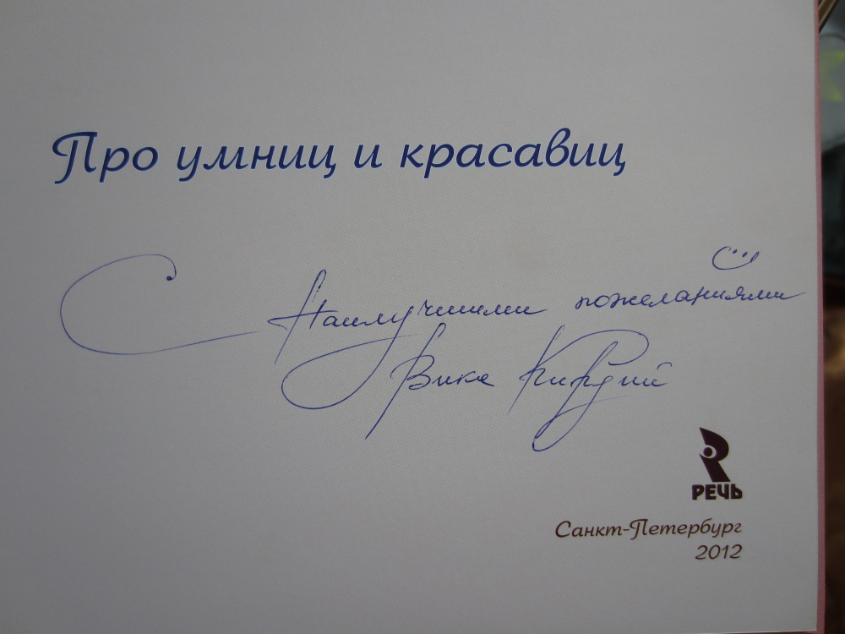 Про умниц и красавиц
С Наилучшими пожеланиями
Вика Кирдий
РЕЧЬ
Санкт-Петербург
2012